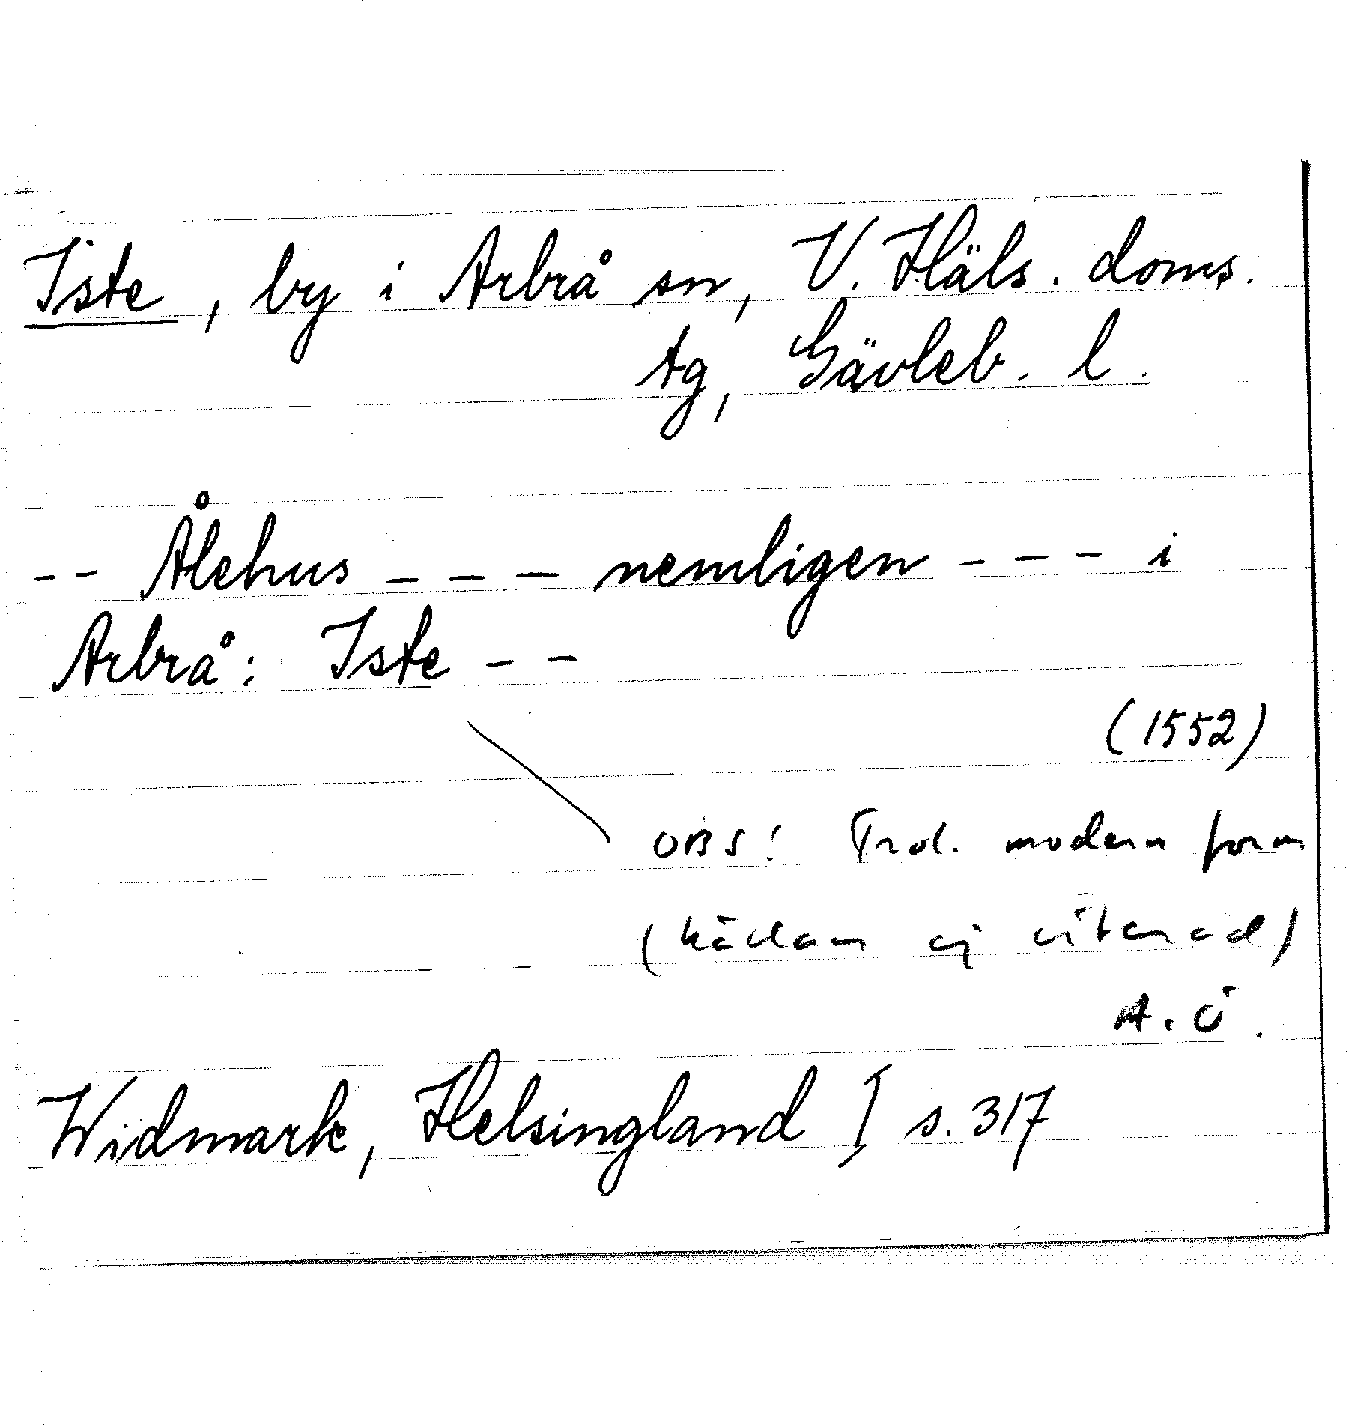 Iste, by i Arbrå sn, V. Häls. doms.
tg, Gävleb. l.
-- Ålehus --- nemligen --- i
Arbrå: Iste --
(1552)
OBS! Trol. modern form
(källan ej citerad)
A.Ö.
Widmark, Helsingland I s. 317